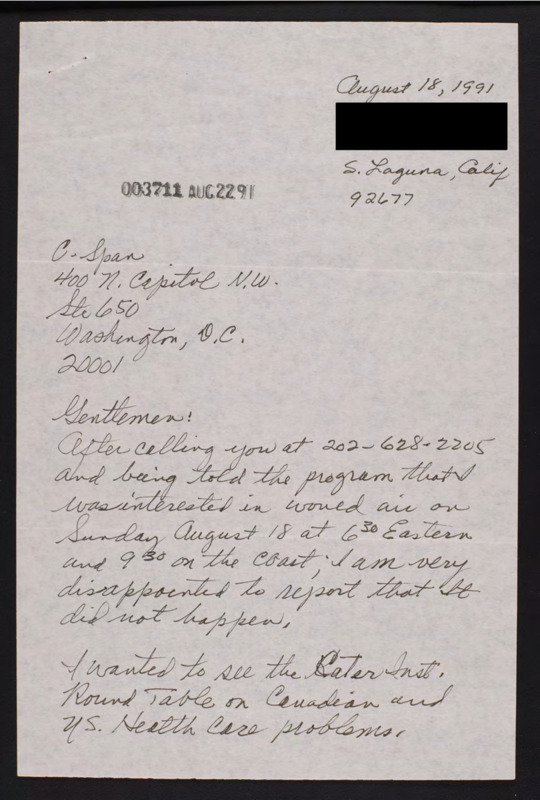 August 18, 1991
S. Laguna, Calif
92677
003711 AUG2291
C-Span
400 N. Capitol N.W.
Ste 650
Washington, D.C.
20001
Gentlemen!
After calling you at 202-628-2205
and being told the program that I
was interested in would air on
Sunday August 18 at 6 30 Eastern
and 9 30 on the coast, I am very
disappointed to report that it
did not happen.
I wanted to see the Inst.
Round Table on Canadian and
U.S. Health Care problems.